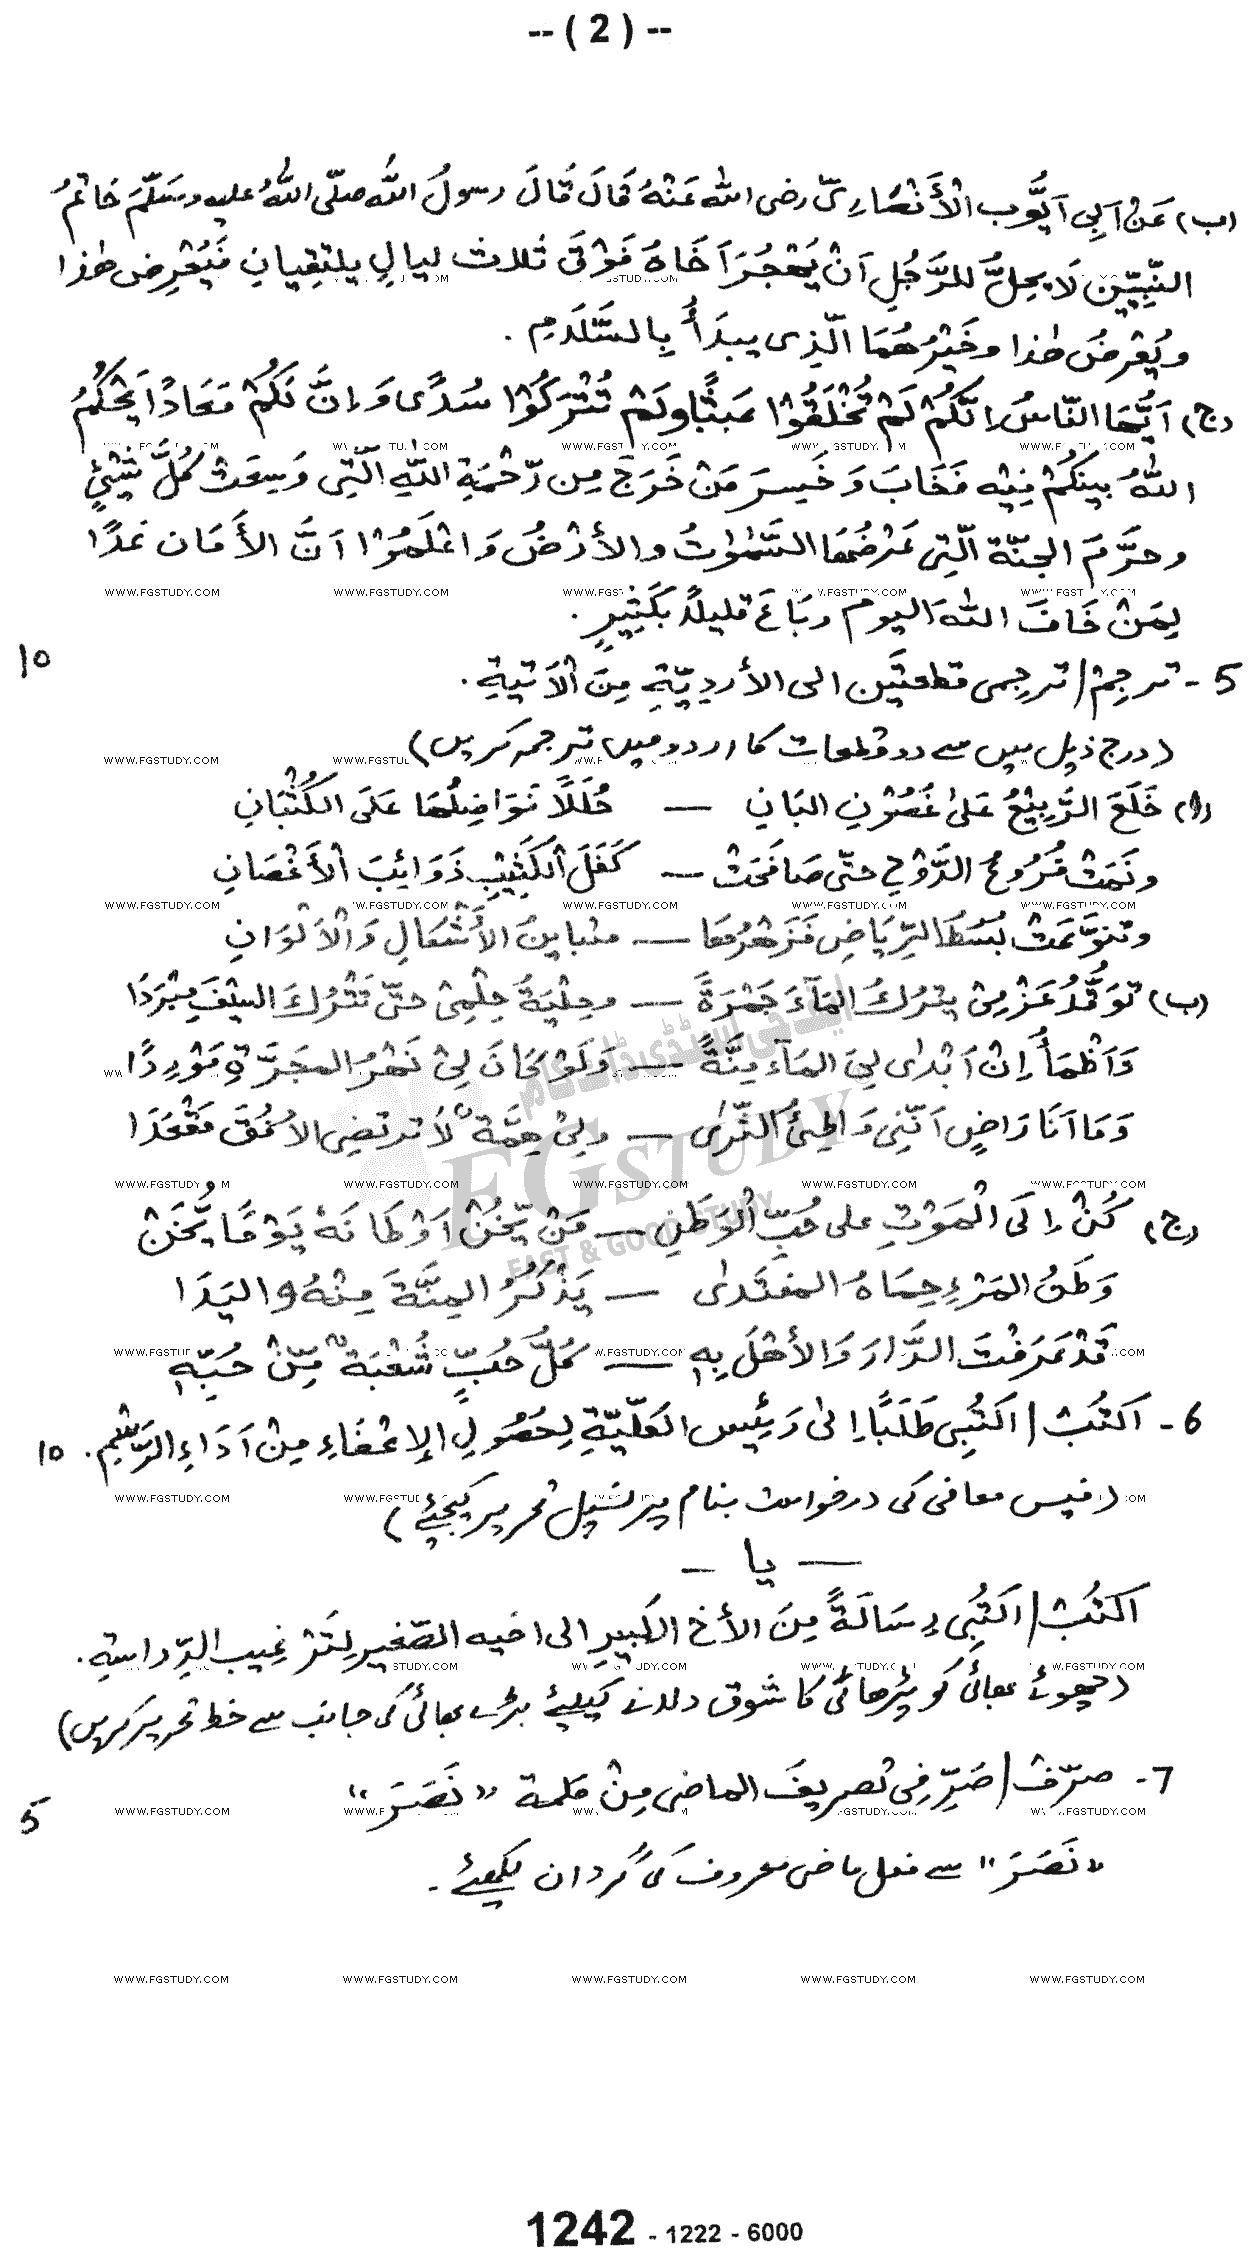 -- ( 2 ) --
(ب) عَنْ اَبِی اَیُّوب الْأَنْصَارِیِّ رضی اللہ عَنْهُ قَالَ قَالَ رسولُ اللہ صلّی اللہُ علیہ وسَلَّمَ خَاتمُ
النَّبِیّیْن لَا یحِلُّ للرَّجُلِ اَنْ یَھْجُرَ اَخَاہُ فَوْقَ ثلاث لیالٍ یلتقِیانِ فَیُعْرِض ھٰذا
ویُعْرِضُ ھٰذا وخَیْرُھُمَا الَّذِی یبدَأُ بِالسَّلَامِ ۔
(ج) اَیُّھَا النَّاسُ اِنَّکُمْ لَمْ تُخْلَقُوْا عَبَثًا ولَمْ تُتْرَکُوْا سُدًی وَاِنَّ لَکُمْ مَعَادًا یَحْکُمُ
اللہُ بینَکُمْ فِیْہِ فَخَابَ وَخَسِرَ مَنْ خَرَجَ مِن رَّحْمَۃِ اللّٰہِ الَّتِی وَسِعَتْ کُلَّ شَیْئٍ
وحرَّمَ الجنّۃ الَّتِی عَرْضُھَا السَّمٰوٰتُ والأرْضُ وَاعْلَمُوْا اَنَّ الأَمَانَ غدًا
لِمَنْ خَافَ اللہَ الیوم وبَاعَ قلیلًا بکَثِیْرٍ ۔
5 - ترجِمْ/ترجِمی قطعتَین الی الأردِیّۃِ مِنَ الْاٰتیۃِ ۔ 10
(درج ذیل میں سے دو قطعات کا اردو میں ترجمہ کریں)
(ا) خَلَعَ الرَّبِیْعُ عَلیٰ غُصُوْنِ البَانِ — حُلَلًا فَوَاضِلُھَا عَلَی الْکُثْبَانِ
ونَمَتْ فُرُوْعُ الدَّوْحِ حتّی صَافَحَتْ — کَفَلَ الْکَثِیْبِ ذَوَائِبَ الْأَغْصَانِ
وتنوَّعَتْ بُسُطُ الرِّیَاضِ فَزَھْرُھَا — متبایِنُ الأَشْکَالِ وَالْأَلْوَانِ
(ب) توَقُّدُ عَزْمِیْ یترُكُ المَآءَ جَمْرَۃً — وحِلْیَۃُ حِلْمِیْ حتّی تَتْرُكَ السَّیْفَ مِبْرَدًا
وَاَظْمَأُ اِنْ اَبْدٰی لِیَ المَآء مِنَّۃً — وَلَوْ کَانَ لِیْ نَھْرُ المَجَرَّۃِ مَوْرِدًا
وَمَا اَنَا رَاضٍ اَنَّنِی وَاطِئُ الثَّرٰی — ولِیْ ھِمَّۃٌ لَا ترتضِی الاُفُقَ مَقْعَدَا
(ج) کُنْ اِلَی الْمَوْتِ علی حُبِّ الْوَطَنِ — مَنْ یَّخُنْ اَوْطَانَهُ یَوْمًا یُّخَنْ
وَطَنُ المَرْءِ حِمَاہُ المفتدٰی — یَذْکُرُ المِنَّۃَ مِنْهُ والیَدَا
قَدْ عَرَفْتَ الدَّارَ وَالأھْلَ بِہٖ — کُلُّ حُبٍّ شُعْبَۃٌ مِّنْ حُبِّہٖ
6 - اکتُبْ / اکتُبِی طَلَبًا اِلیٰ رَئِیس الکُلّیّۃِ لِحُصُوْلِ الإعْفَاءِ مِنْ اَدَاءِ الرَّسْمِ ۔ 10
(فیس معافی کی درخواست بنام پرنسپل تحریر کیجئے)
— یا —
اکتُبْ / اکتُبِی رِسَالَۃً مِنَ الأخ الکَبِیرِ الی اخیہ الصَّغیرِ لِتَرْغِیبِ الدِّراسۃِ ۔
(چھوٹے بھائی کو پڑھائی کا شوق دلانے کیلئے بڑے بھائی کی جانب سے خط تحریر کریں)
7 - صرّفْ / صَرِّفِی تصریفَ الماضی مِنْ کلمۃ "نَصَرَ" 5
"نَصَرَ" سے فعل ماضی معروف کی گردان لکھئے ۔
1242 - 1222 - 6000